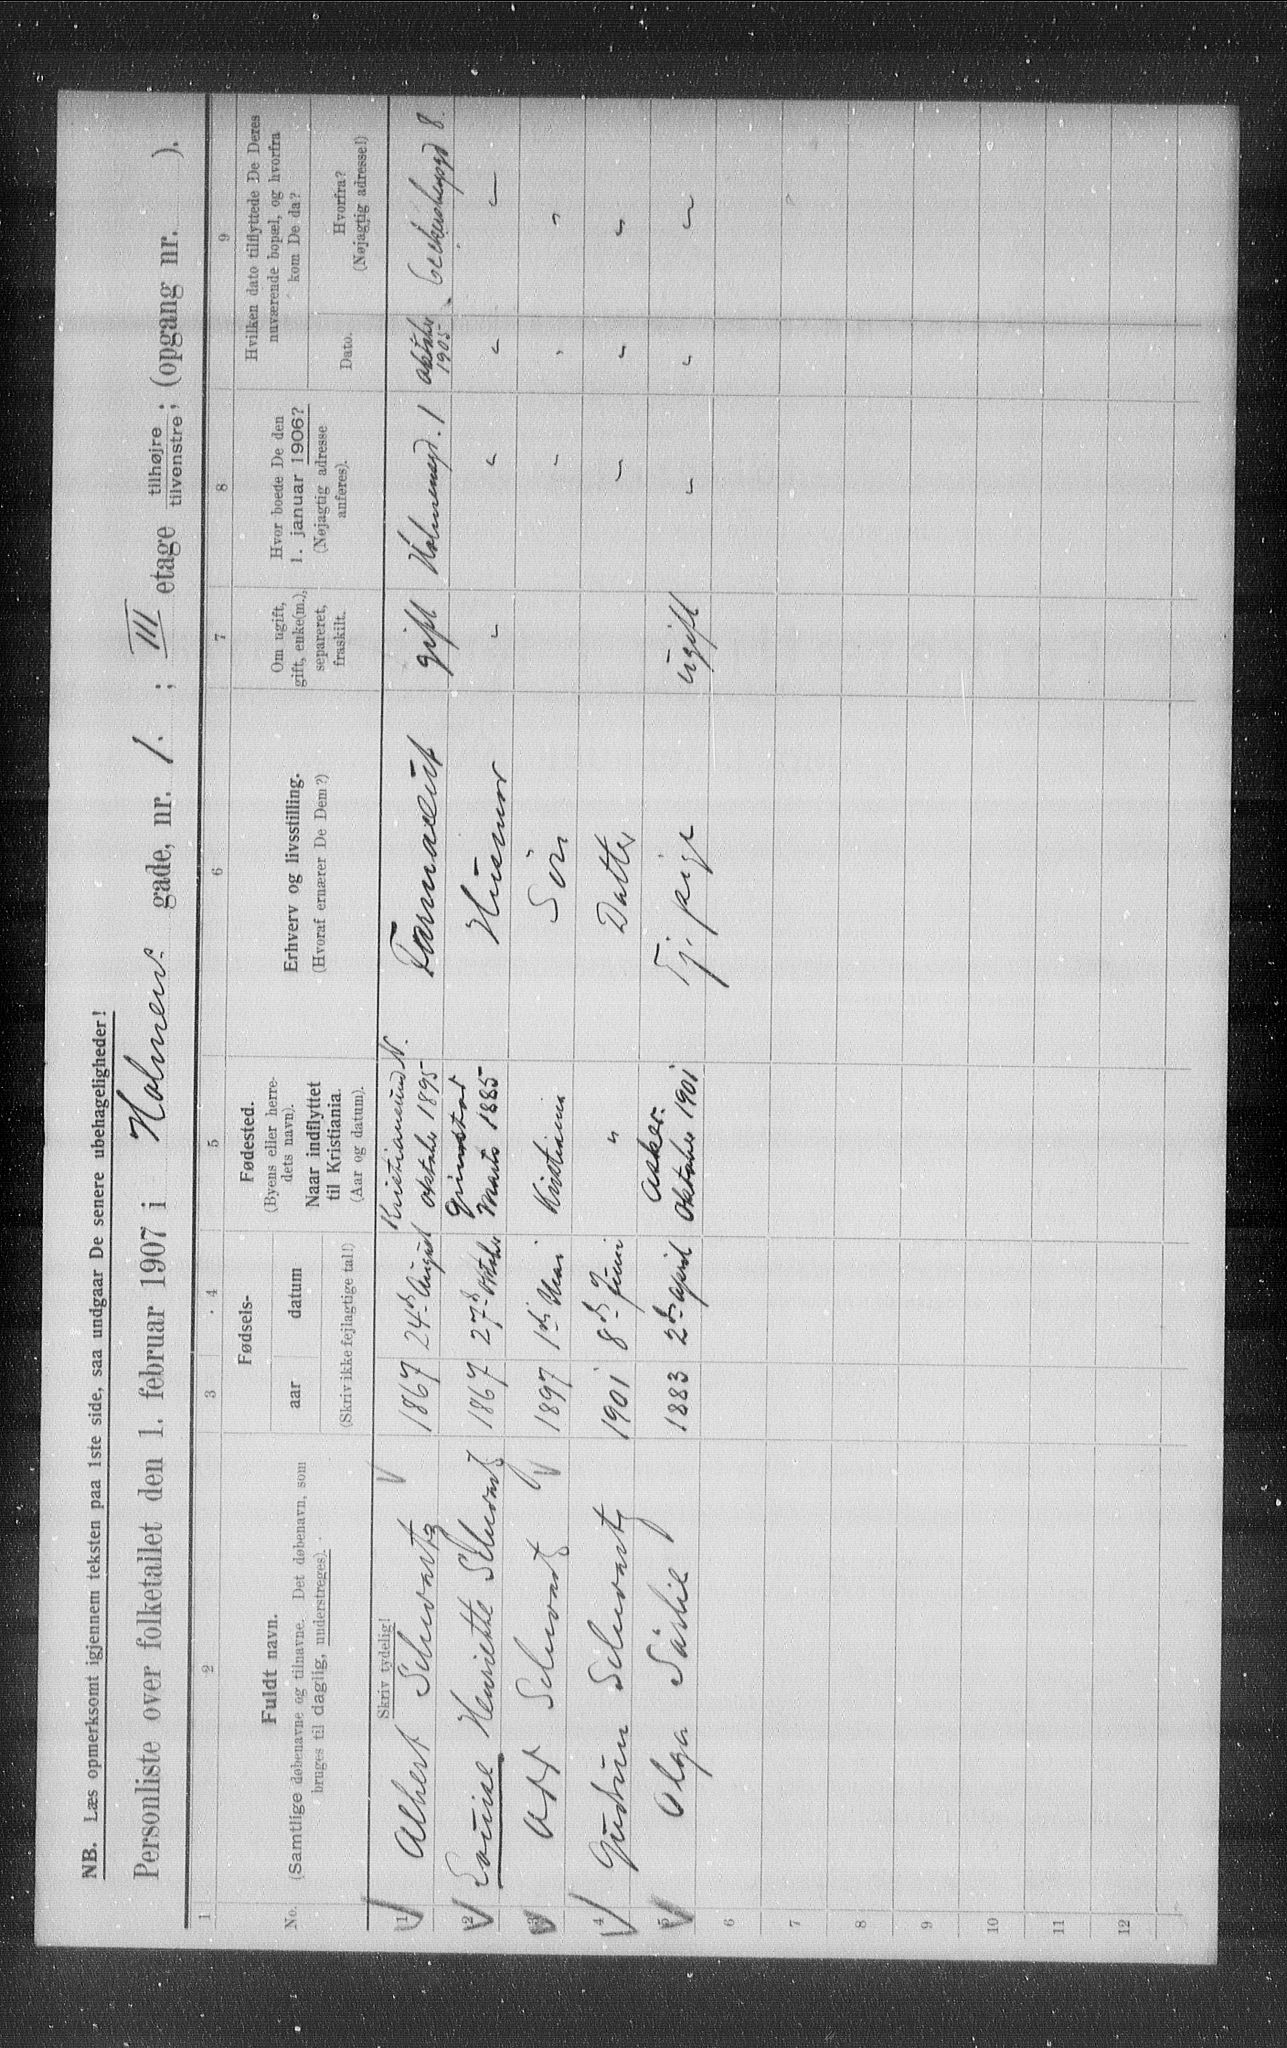 NB. Læs opmerksomt igjennem teksten paa 1ste side, saa undgaar De senere ubehageligheder!
Personliste over folketallet den 1. februar 1907 i Holmens gade, nr. 1. ; III etage tilhøjre / tilvenstre; (opgang nr. ).
1 2 3 4 5 6 7 8 9
No.
Fuldt navn.
(Samtlige døbenavne og tilnavne. Det døbenavn, som
bruges til daglig, understreges).
Skriv tydelig!
Fødsels-
aar datum
(Skriv ikke fejlagtige tal!)
Fødested.
(Byens eller herre-
dets navn).
Naar indflyttet
til Kristiania.
(Aar og datum).
Erhverv og livsstilling.
(Hvoraf ernærer De Dem?)
Om ugift,
gift, enke(m.),
separeret,
fraskilt.
Hvor boede De den
1. januar 1906?
(Nøjagtig adresse
anføres).
Hvilken dato tilflyttede De Deres
nuværende bopæl, og hvorfra
kom De da?
Dato.
Hvorfra?
(Nøjagtig adresse!)
1 Albert Schwartz 1867 24de August Kristiansund N. oktober 1895 gift Holmensgd. 1 oktober 1905 8.
2 Louise Henriette Schwartz 1867 27de oktober Grimstad Marts 1885 Husmor " " " "
3 Schwartz 1897 1ste Mai Kristiania Søn " " "
4 Gudrun Schwartz 1901 8de Juni " Datter " " "
5 Olga 1883 2den april Asker. Oktober 1901 Tj. pige ugift " " "
6
7
8
9
10
11
12